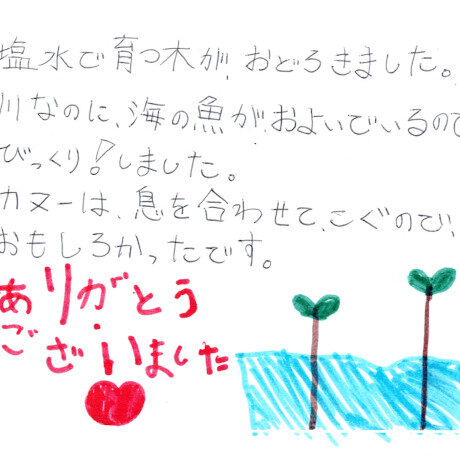 塩水で育つ木が、おどろきました。
川なのに、海の魚が、およいでいるので
びっくり!しました。
カヌーは、息を合わせて、こぐので、
おもしろかったです。
ありがとう
ございました